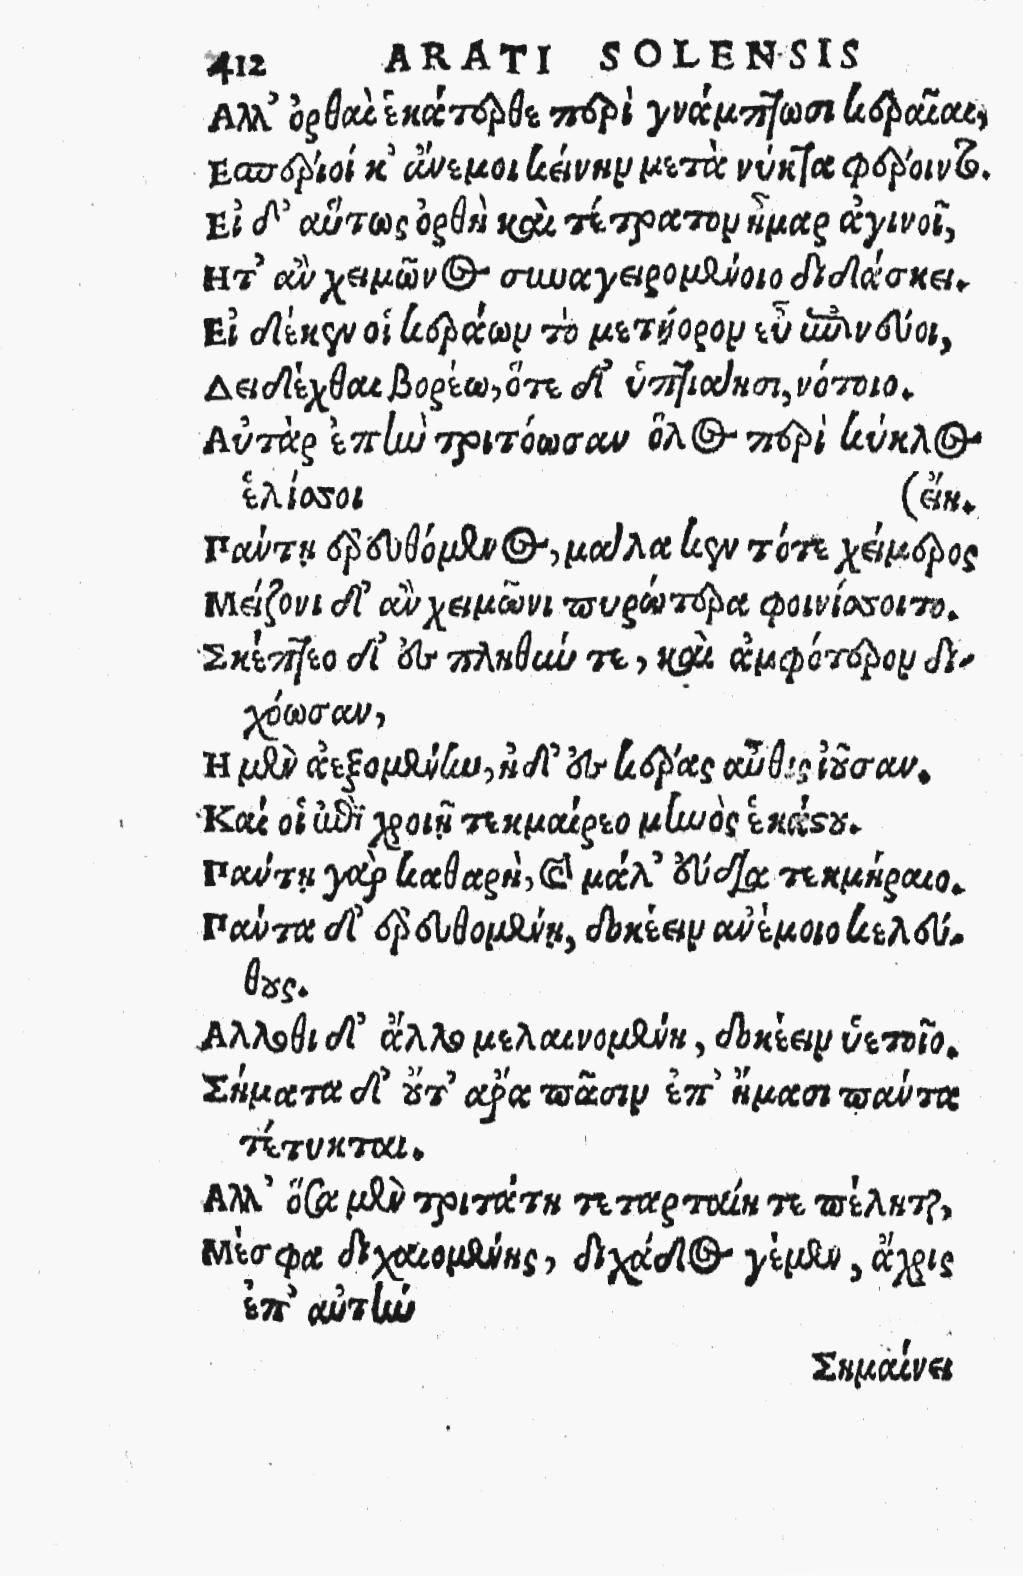 412 ARATI SOLENSIS
Αλλ' ὀρθαὶ ἑκάτερθε περὶ γνάμπτωσι κεραῖαι,
Εσπερίοί κ' ἄνεμοι κείνην μετὰ νύκτα φέροιντο.
Εἰ δ' αὕτως ὀρθὴ καὶ τέτρατον ἦμαρ ἀγινοῖ,
Ητ' ἂν χειμῶνος συναγειρομένοιο διδάσκει.
Εἰ δέ κέν οἱ κεράων τὸ μετήορον εὖ ἐπινεύοι,
Δειδέχθαι βορέω, ὅτε δ' ὑπτιάησι, νότοιο.
Αὐτὰρ ἐπὴν τριτόωσαν ὅλος περὶ κύκλος
ἑλίσσοι (εἴη.
Πάντη ἐρευθόμενος, μάλα κεν τότε χείμερος
Μείζονι δ' ἂν χειμῶνι πυρώτερα φοινίσσοιτο.
Σκέπτεο δ' ἐς πληθύν τε, καὶ ἀμφότερον δι-
χόωσαν,
Η μὲν ἀεξομένην, ἠδ' ἐς κέρας αὖθις ἰοῦσαν.
Καί οἱ ἐπὶ χροιῇ τεκμαίρεο μηνὸς ἑκάστου.
Πάντῃ γὰρ καθαρὴ, καὶ μάλ' εὔδια τεκμήραιο.
Πάντα δ' ἐρευθομένῃ, δοκέειν ἀνέμοιο κελεύ-
θους.
Αλλοθι δ' ἄλλο μελαινομένη, δοκέειν ὑετοῖο.
Σήματα δ' οὔτ' ἄρα πᾶσιν ἐπ' ἤμασι πάντα
τέτυκται.
Αλλ' ὅσα μὲν τριτάτη τεταρταίη τε πέληται,
Μέσφα διχαιομένης, διχάδος γέμεν, ἄχρις
ἐπ' αὐτὴν
Σημαίνει